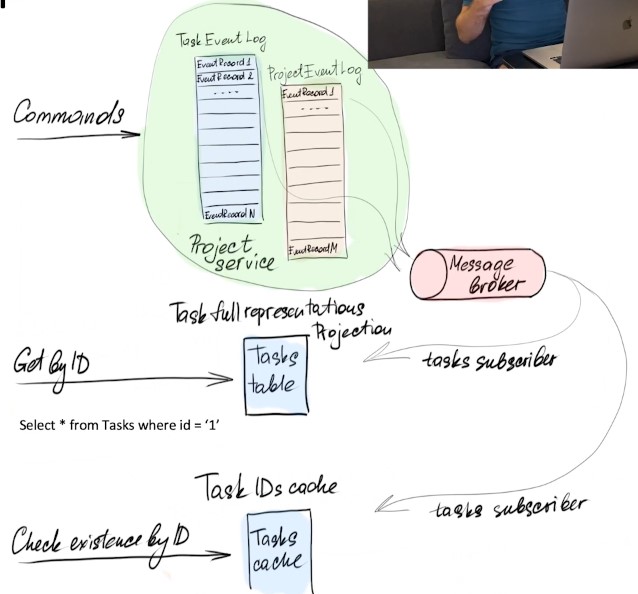 Task Event Log
EventRecord 1
EventRecord 2
....
EventRecord N
Project Event Log
EventRecord 1
....
EventRecord M
Commands
Project
service
Message
broker
Task full representations
Projection
Get by ID
Tasks
table
tasks subscriber
Select * from Tasks where id = ‘1’
Task IDs cache
tasks subscriber
Check existence by ID
Tasks
cache